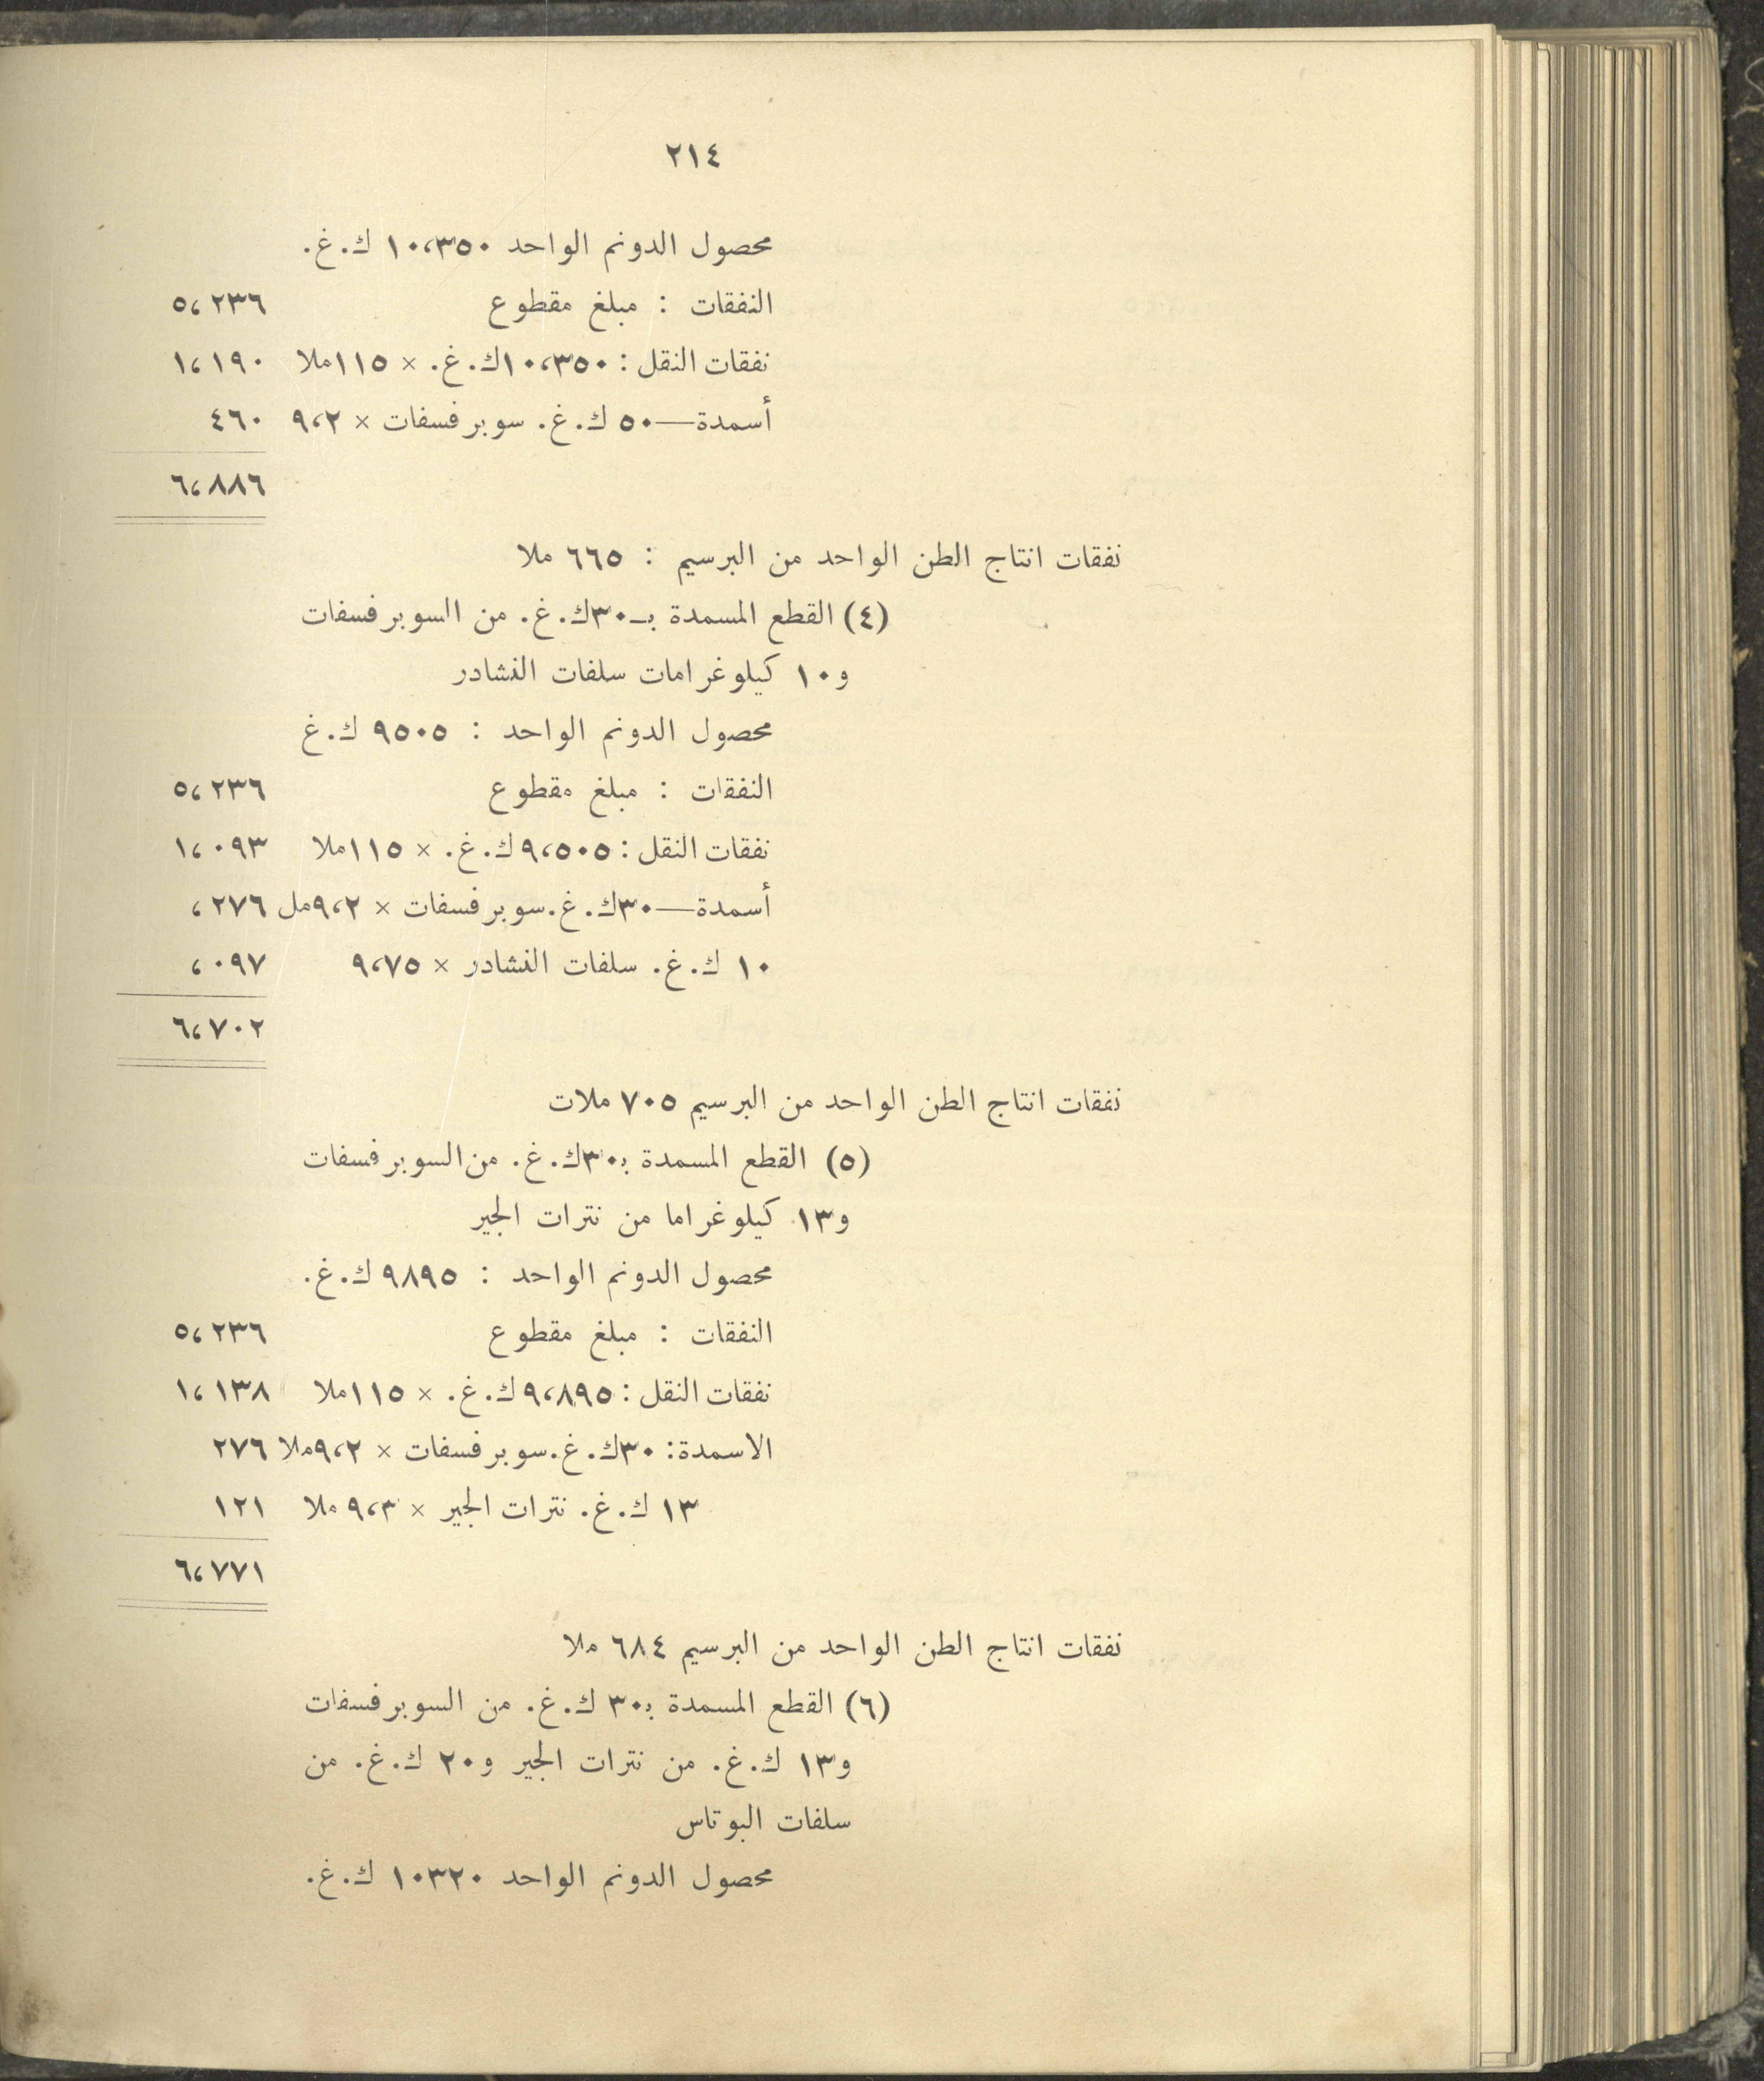 ٢١٤
محصول الدونم الواحد ١٠،٣٥٠ ك.غ.
النفقات : مبلغ مقطوع ٥،٢٣٦
نفقات النقل : ١٠،٣٥٠ك.غ. × ١١٥ملا ١،١٩٠
أسمدة—٥٠ ك.غ. سوبر فسفات × ٩،٢ ٤٦٠
٦،٨٨٦
نفقات انتاج الطن الواحد من البرسيم : ٦٦٥ ملا
(٤) القطع المسمدة بـ٣٠ك.غ. من السوبر فسفات
و١٠ كيلوغرامات سلفات النشادر
محصول الدونم الواحد : ٩٥٠٥ ك.غ
النفقات : مبلغ مقطوع ٥،٢٣٦
نفقات النقل : ٩،٥٠٥ك.غ. × ١١٥ملا ١،٠٩٣
أسمدة—٣٠ك.غ.سوبر فسفات × ٩،٢مل ،٢٧٦
١٠ ك.غ. سلفات النشادر × ٩،٧٥ ،٠٩٧
٦،٧٠٢
نفقات انتاج الطن الواحد من البرسيم ٧٠٥ ملات
(٥) القطع المسمدة ب٣٠ك.غ. من السوبر فسفات
و١٣ كيلوغراما من نترات الجير
محصول الدونم الواحد : ٩٨٩٥ ك.غ.
النفقات : مبلغ مقطوع ٥،٢٣٦
نفقات النقل : ٩،٨٩٥ك.غ. × ١١٥ملا ١،١٣٨
الاسمدة: ٣٠ك.غ.سوبر فسفات × ٩،٢ملا ٢٧٦
١٣ ك.غ. نترات الجير × ٩،٣ ملا ١٢١
٦،٧٧١
نفقات انتاج الطن الواحد من البرسيم ٦٨٤ ملا
(٦) القطع المسمدة ب٣٠ ك.غ. من السوبر فسفات
و١٣ ك.غ. من نترات الجير و٢٠ ك.غ. من
سلفات البوتاس
محصول الدونم الواحد ١٠٣٢٠ ك.غ.